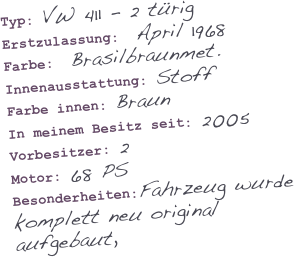 Typ: VW 411 - 2 türig
Erstzulassung: April 1968
Farbe: Brasilbraunmet.
Innenausstattung: Stoff
Farbe innen: Braun
In meinem Besitz seit: 2005
Vorbesitzer: 2
Motor: 68 PS
Besonderheiten: Fahrzeug wurde
komplett neu original
aufgebaut,